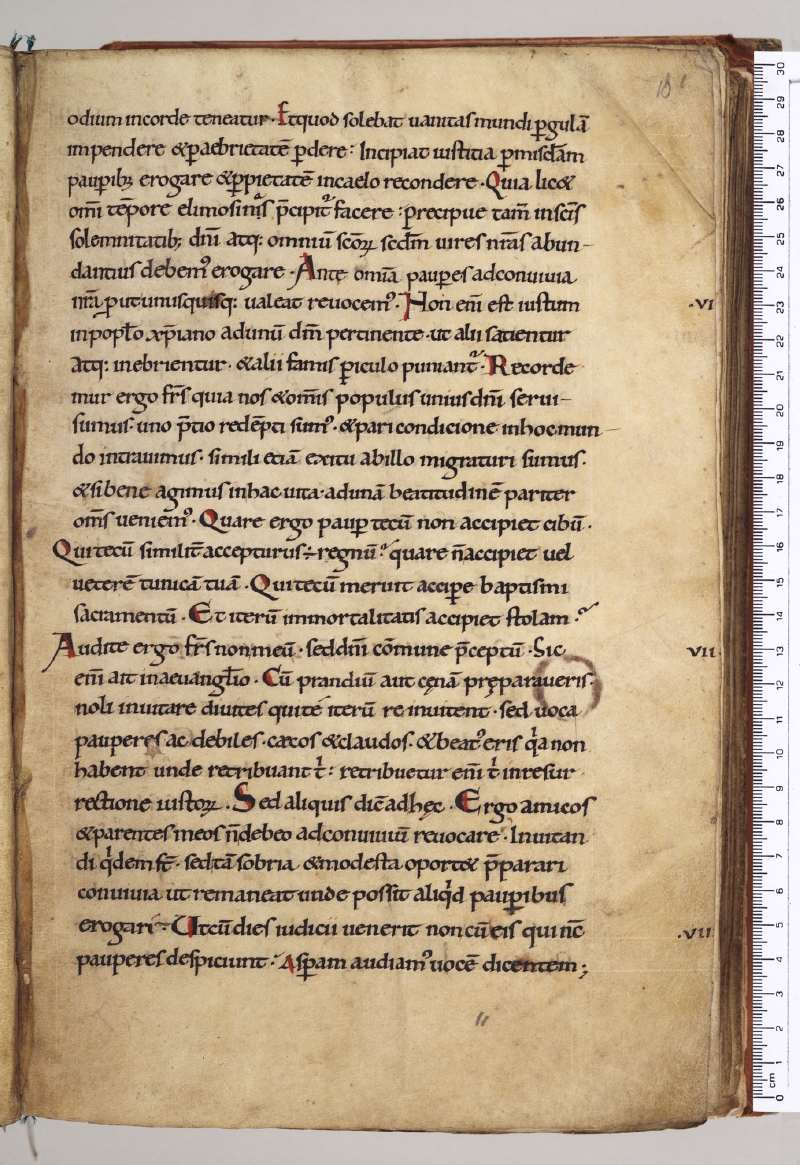 odium incorde teneatur. Etquod solebat uanitas mundi ꝑgulā
impendere &ꝑaebrietatē ꝑdere: Incipiat iustitia ꝑmisc̄dam
pauꝑib; erogare &ꝓpietatē incaelo recondere. Quia lic&
om̄i tēpore elimosinis p̄cipit᷑ facere: precipue tam̄ insc̄is
solemnitatib; dn̄i atq: omniū sc̄oꝝ sec̄dm uires nr̄as abun-
dantius debem᾽ erogare. Ante omīa pauperes adconuiuia
nr̄a put unusquisq: ualeat reuocem᾽. Non em̄ est iustum
.VI
inpopl̄o xp̄iano adunū dn̄m pertinente. ut alii satientur
atq: inebrientur. &alii famis ꝑiculo puniant᷑. Recorde
mur ergo fr̄s quia nos &om̄is populus unius dn̄i serui-
sumus. uno p̄tio redēpti sum᾽. &pari condicione inhocmun
do intrauimus. simili etiā exitu abillo migraturi sumus.
&sibene agimus inhac uita. adunā beatitudinē pariter
om̄s ueniem᾽. Quare ergo pauꝑ tecū non accipiet cibū.
Qui tecū similit̄ accepturus ÷ regnū. quare n̄accipiet uel
ueterē tunicā tuā. Qui tecū meruit acciꝑe baptismi
sacramentū. Et iterū immortalitatis accipiet stolam.
Audite ergo fr̄s non meū. sed dn̄i cōmune p̄ceptū. Sic
VII
em̄ ait inaeuangl̄io. Cū prandiū aut cęnā pręparaueris.
noli inuitare diuites qui té iterū re inuitent. sed uoca
pauperes ac debiles. caecos &claudos. &beat᾽ eris qͥa non
habent unde retribuant t̄: retribuetur em̄ t̄ inresur
rectione iustoꝝ. Sed aliquis dic̄ adhęc. Ergo amicos
&parentes meos n̄debeo adconuiuiū reuocare. Inuitan
di qͥdem st̄. sed tā sobria &modesta oport& p̄parari
conuiuia ut remaneat unde possit aliqͥd pauꝑibus
erogari. Ut cū dies iudicii uenerit non cū eis qui nc̄
.VII
pauperes despiciunt. Aspam audiam᾽ uocē dicentem;